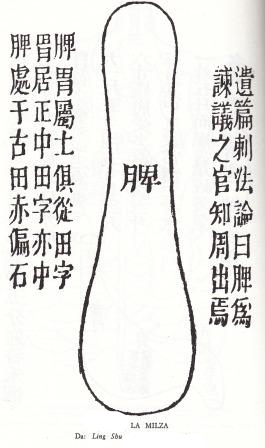 遺篇刺法論曰脾爲
諫議之官知周出焉
脾
脾胃屬土俱從田字
胃居正中田字亦中
脾處于古田赤偏石
LA MILZA
Da: Ling Shu